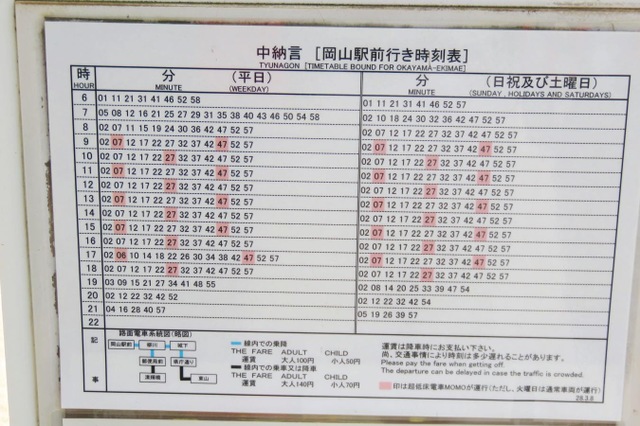 中納言 [岡山駅前行き時刻表]
TYUNAGON [TIMETABLE BOUND FOR OKAYAMA-EKIMAE]
時 分 (平日) 分 (日祝及び土曜日)
HOUR MINUTE (WEEKDAY) MINUTE (SUNDAY, HOLIDAYS AND SATURDAYS)
6 01 11 21 31 41 46 52 58 01 11 21 31 41 46 52 57
7 05 08 12 16 21 25 27 29 31 35 38 40 43 46 50 54 58 02 10 18 24 30 32 36 42 47 52 57
8 02 07 11 15 19 24 30 36 42 47 52 57 02 07 12 17 22 27 32 37 42 47 52 57
9 02 07 12 17 22 27 32 37 42 47 52 57 02 07 12 17 22 27 32 37 42 47 52 57
10 02 07 12 17 22 27 32 37 42 47 52 57 02 07 12 17 22 27 32 37 42 47 52 57
11 02 07 12 17 22 27 32 37 42 47 52 57 02 07 12 17 22 27 32 37 42 47 52 57
12 02 07 12 17 22 27 32 37 42 47 52 57 02 07 12 17 22 27 32 37 42 47 52 57
13 02 07 12 17 22 27 32 37 42 47 52 57 02 07 12 17 22 27 32 37 42 47 52 57
14 02 07 12 17 22 27 32 37 42 47 52 57 02 07 12 17 22 27 32 37 42 47 52 57
15 02 07 12 17 22 27 32 37 42 47 52 57 02 07 12 17 22 27 32 37 42 47 52 57
16 02 07 12 17 22 27 32 37 42 47 52 57 02 07 12 17 22 27 32 37 42 47 52 57
17 02 06 10 14 18 22 26 30 34 38 42 47 52 57 02 07 12 17 22 27 32 37 42 47 52 57
18 02 07 12 17 22 27 32 37 42 47 52 57 02 07 12 17 22 27 32 37 42 47 52 57
19 03 09 15 21 27 34 41 48 55 02 08 14 20 25 33 39 47 54
20 02 12 22 32 42 52 02 12 22 32 42 54
21 04 16 28 40 57 05 19 26 39 57
22
記事
路面電車系統図(略図)
岡山駅前 柳川 城下
郵便局前 県庁通り
清輝橋 東山
線内での乗降
THE FARE ADULT CHILD
運賃 大人100円 小人50円
線内での乗車又は降車
THE FARE ADULT CHILD
運賃 大人140円 小人70円
運賃は降車時にお支払い下さい。
尚、交通事情により時刻は多少遅れることがあります。
Please pay the fare when getting off.
The departure can be delayed in case the traffic is crowded.
印は超低床電車MOMOが運行(ただし、火曜日は通常車両が運行)
28.3.8